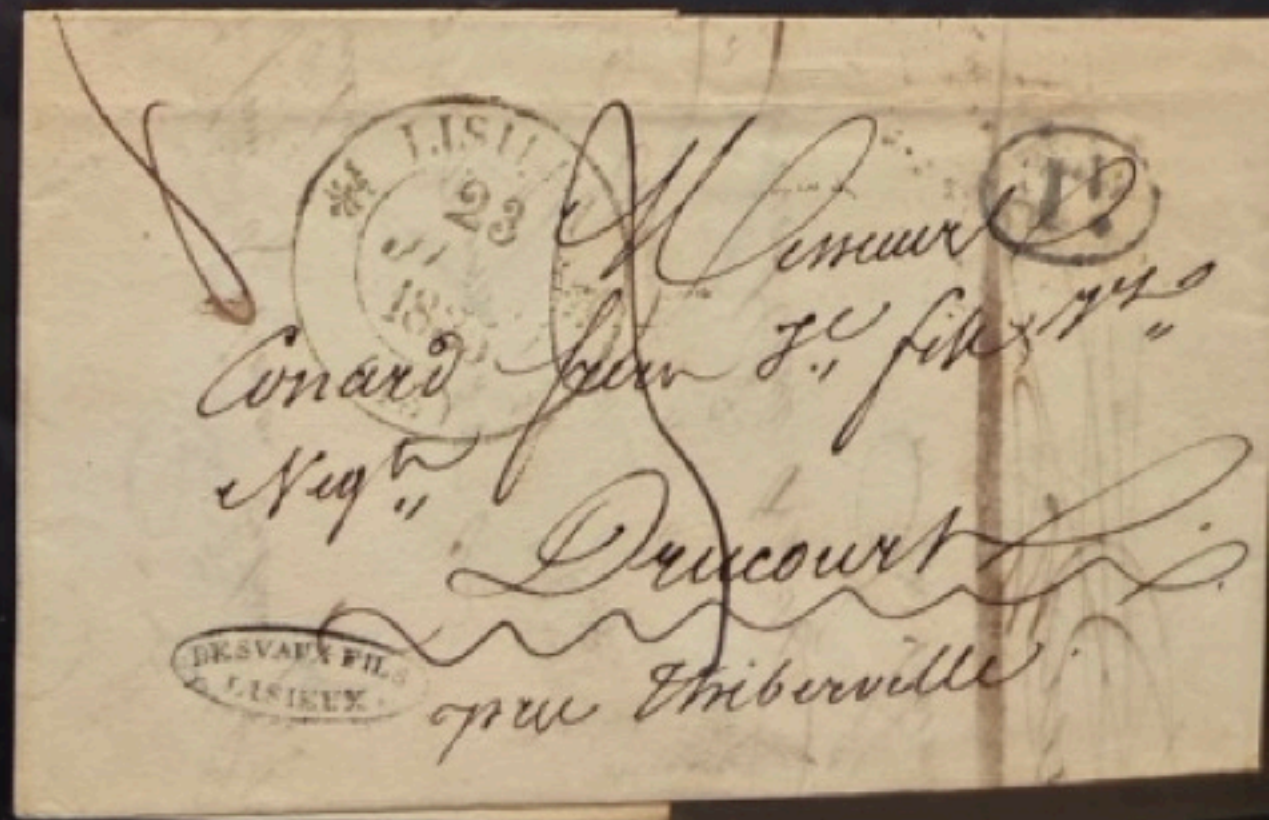 LISI
23
18
Messieurs
Conard frères Je. fils &
Negts
Drucourt
près Thiberville
DESVAUX FILS
À LISIEUX